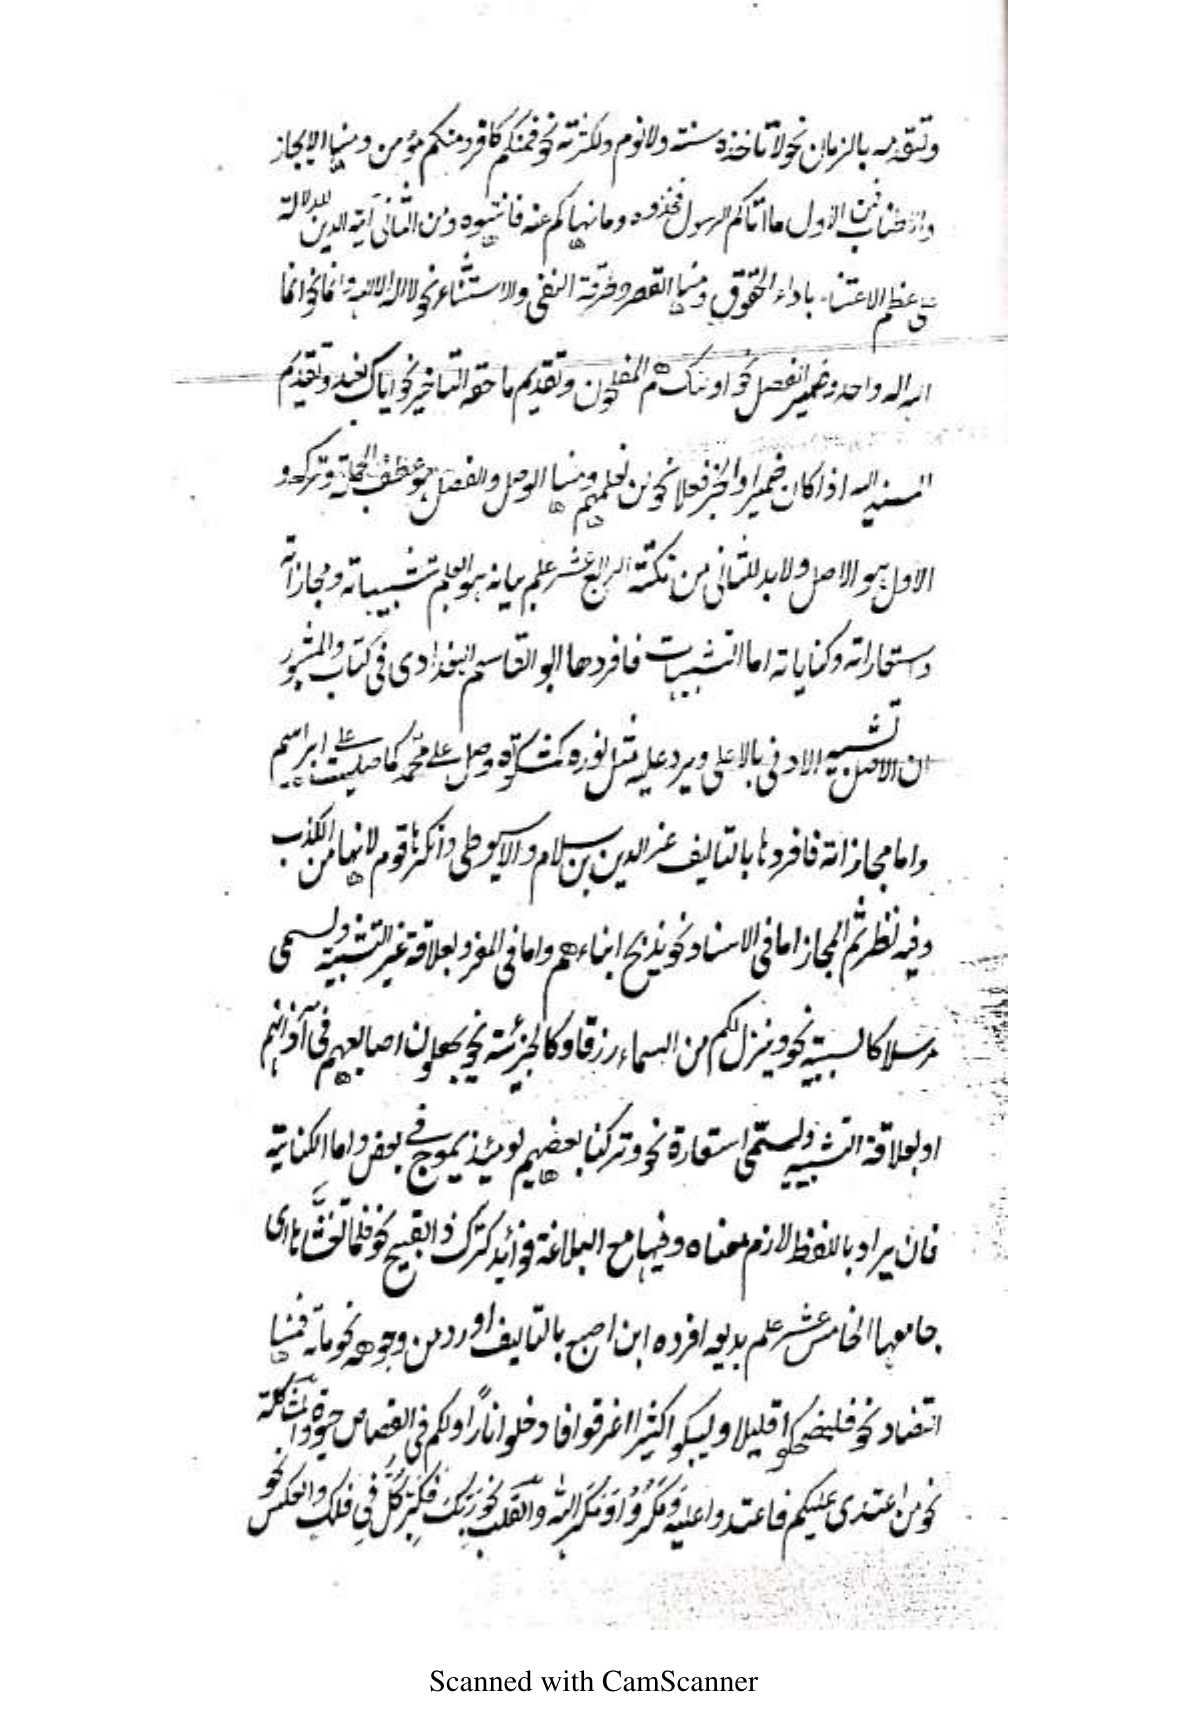 وتقدمه بالزمان نحو لا تاخذه سنة ولا نوم ولكثرته نحو فمنكم كافر ومنكم مؤمن ومنها الايجاز
والاطناب فمن الاول ما اتاكم الرسول فخذوه وما نهاكم عنه فانتهوه ومن الثانى آية الدين للدلالة
على عظم الاعتناء باداء الحقوق ومنها القصر وطرقه النفى والاستثناء نحو لا اله الا الله وانما نحو انما
الله اله واحد وضمير الفصل نحو اولئك هم المفلحون وتقديم ما حقه التاخير نحو اياك نعبد وتقديم
المسند اليه اذا كان ضميرا والخبر فعلا نحو نحن نعلمهم ومنها الوصل والفصل هو عطف الجملة وتركه و
الاول هو الاصل ولا بد للثانى من نكتة الرابع عشر علم بيانه هو العلم تشبيهاته ومجازاته
واستعاراته وكناياته اما التشبيهات فافردها ابو القاسم البغدادى فى كتاب والمشهور
ان الاصل تشبيه الادنى بالاعلى ويرد عليه مثل نوره كمشكوة وصل على محمد كما صليت على ابراهيم
واما مجازاته فافردها بالتاليف عز الدين بن سلام والاسيوطى وانكرها قوم لانها من الكذب
وفيه نظر ثم المجاز اما فى الاسناد نحو يذبح ابناءهم واما فى المفرد بعلاقة غير التشبيه ويسمى
مرسلا كالسببية نحو وينزل لكم من السماء رزقا وكالجزئية نحو يجعلون اصابعهم فى آذانهم
او بعلاقة التشبيه ويسمى استعارة نحو وتركنا بعضهم يومئذ يموج فى بعض واما الكناية
فان يراد باللفظ لازم معناه وفيها مع البلاغة فوائد كترك ذا القبيح نحو فلما تغشاها اى
جامعها الخامس عشر علم بديعه افرده ابن اصبع بالتاليف اورد من وجوهه نحو مائة فمنها
التضاد نحو فليضحكوا قليلا وليبكوا كثيرا اغرقوا فادخلوا نارًا ولكم فى القصاص حيوة والمشاكلة
نحو من اعتدى عليكم فاعتدوا عليه وَمَكَرُوْا وَمَكَرَ الله والقلب نحو رَبَّكَ فَكَبِّر كُلٌّ فِي فَلَكٍ والعكس نحو
Scanned with CamScanner